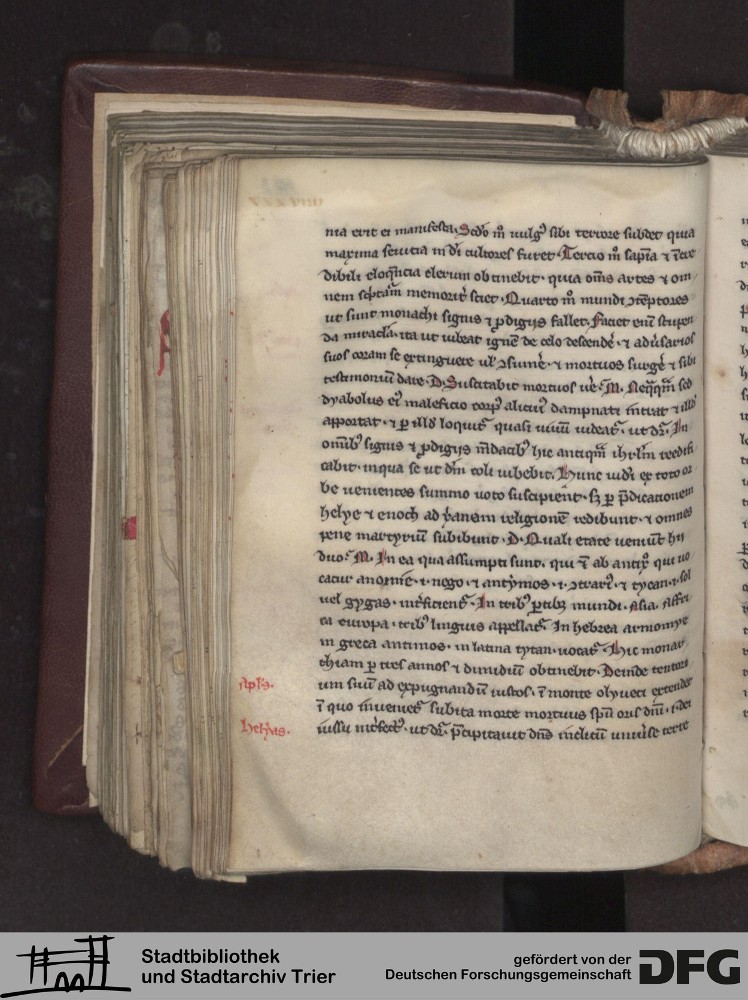 nia erit ei manifesta. Scdo m̄ uulgꝰ sibi terrore subdet quia
maxima seuicia in di cultores furet. Tercio m̄ sapīa ⁊ īcre
dibili eloq̄ncia clerum obtinebit. quia om̄s artes ⁊ om
nem scptam̄ memorit̄ sciet. Quarto m̄ mundi ꝯteptores
ut sunt monachi signis ⁊ ꝓdigijs fallet. Faciet enī stupen
da miracla. ita ut iubeat ignē de celo descendē. ⁊ adūsarios
suos coram se extinguere ul' ꝯsumē. ⁊ mortuos surgē ⁊ sibi
testimoniū dare. D. Suscitabit mortuos uē. M. Neq̄q̄m̄ sed
dyabolus eiꝰ maleficio corpꝰ alicuiꝰ dampnati intrat ⁊ illd
apportat. ⁊ ꝑ illd loquit̄ quasi uiuū uideat̄. ut dr̄. In
omībꝰ signis ⁊ ꝓdigijs m̄dacibꝰ hic antiqm̄ ihrlm̄ reedifi
cabit. inqua se ut dm̄ coli iubebit. Hunc iudi ex toto or
be uenientes summo uoto suscipient. sꝫ ꝑ p̄dicationem
helye ⁊ enoch ad xanam religionē redibunt. ⁊ omnes
pene martyriū subibunt. D. Quali etate ueniūt hij
duo. M. In ea qua assumpti sunt. qui ⁊ ab antixꝰ qui uo
catur anomie. i. nego ⁊ antymos. i. ꝯtrariꝰ. ⁊ tycan. i. sol
uel gygas. int̄ficient̄. In tribꝰ ꝑtibꝫ mundi. Asia. Affri
ca europa. tribꝰ linguis appellat̄. In hebrea armomye
in greca antimos. in latina tytan. uocat̄. Hic monar
chiam ꝑ tres annos ⁊ dimidiū obtinebit. Deinde tentori
um suū ad expugnandū iustos. ī monte olyueti extendet
Apl's.
ī quo inuenietꝰ subita morte mortuus spū oris dnī. i. dei
Helyas.
iussu int̄fectꝰ. ut dr̄. p̄cipitauit dn̄s inclitū uniuīse terre
Stadtbibliothek
und Stadtarchiv Trier
gefördert von der
Deutschen Forschungsgemeinschaft
DFG